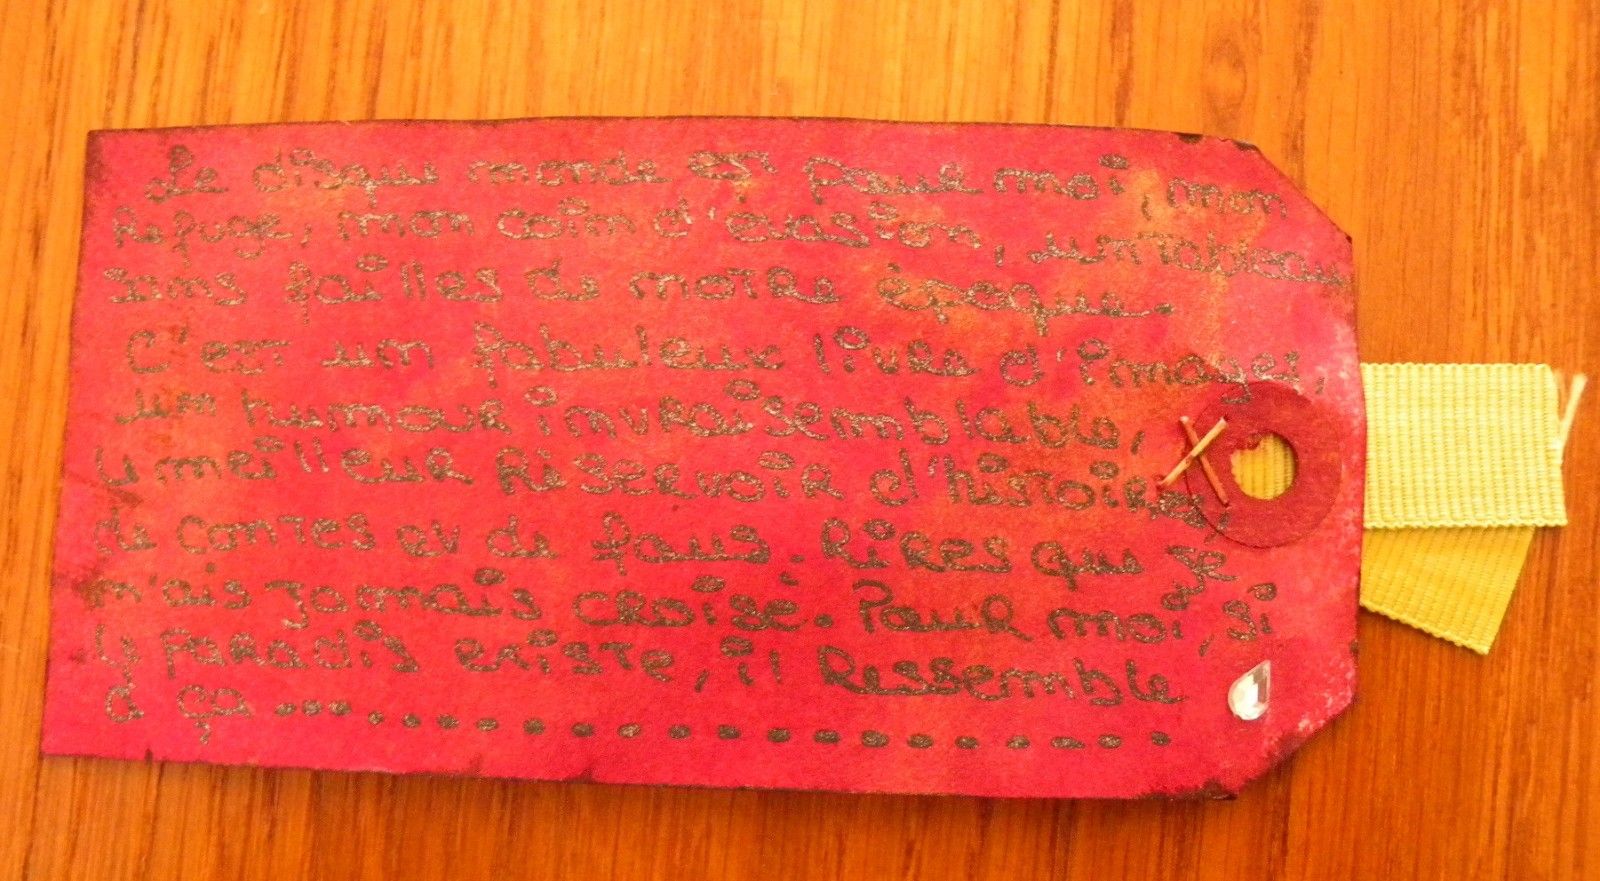 Le disque monde est pour moi, mon
Refuge, mon coin d'évasion, un tableau
sans failles de notre époque.
C'est un fabuleux livre d'images,
un humour invraisemblable,
le meilleur Réservoir d'histoires,
de contes et de fous-Rires que je
n'ais jamais croisé. Pour moi, si
le paradis existe, il Ressemble
à ça ....................